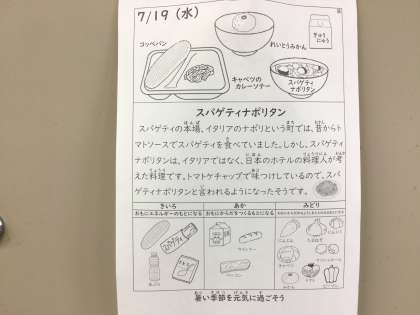 7/19 (水)
コッペパン
れいとうみかん
ぎゅうにゅう
キャベツの
カレーソテー
スパゲティ
ナポリタン
スパゲティナポリタン
スパゲティの本場、イタリアのナポリという町では、昔からト
マトソースでスパゲティを食べていました。しかし、スパゲティ
ナポリタンは、イタリアではなく、日本のホテルの料理人が考
えた料理です。トマトケチャップで味つけしているので、スパ
ゲティナポリタンと言われるようになったそうです。
きいろ
あか
みどり
おもにエネルギーのもとになる
おもにからだをつくるもとになる
スパゲティ
ベーコン
にんじん
たまねぎ
にんにく
キャベツ
マッシュルーム
みかん
トマト
ピーマン
暑い季節を元気に過ごそう